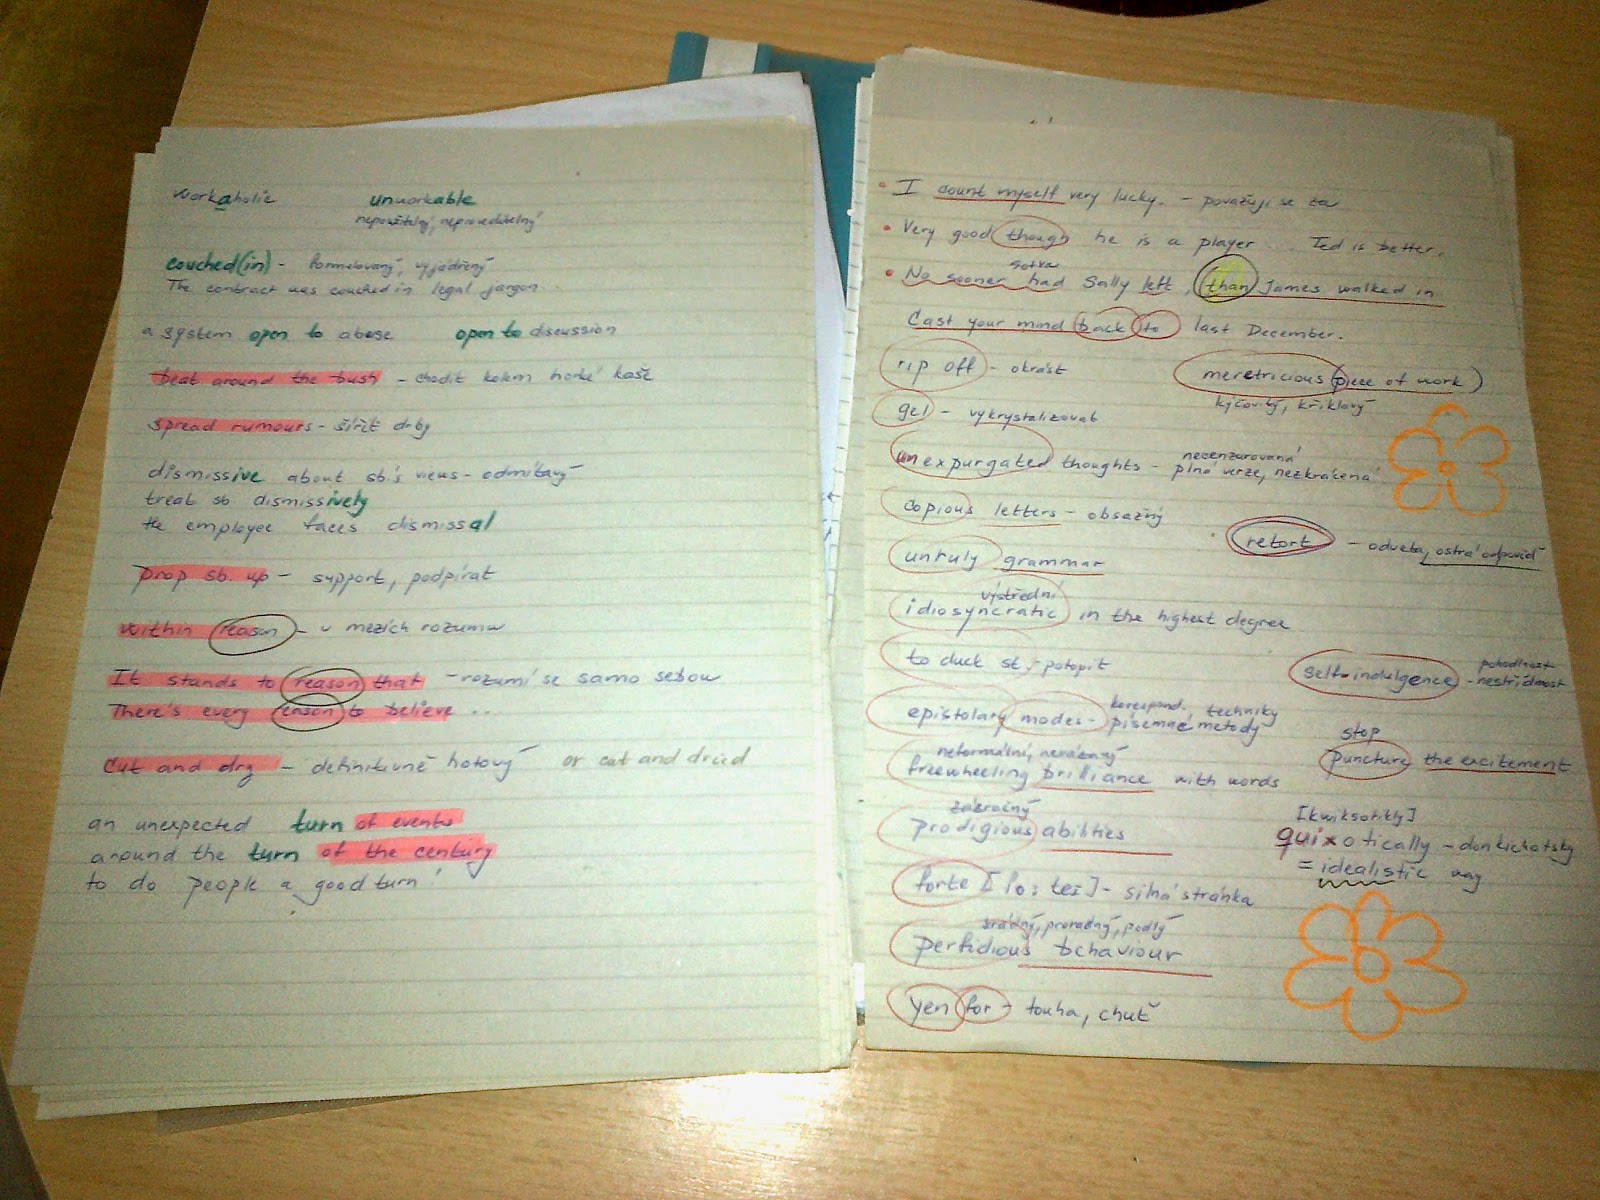 workaholic unworkable
nepoužitelný, neproveditelný
couched (in) - formulovaný, vyjádřený
The contract was couched in legal jargon.
a system open to abuse open to discussion
beat around the bush - chodit kolem horké kaše
spread rumours - šířit drby
dismissive about sb.'s views - odmítavý
treat sb dismissively
the employee faces dismissal
prop sb. up - support, podpírat
within reason - v mezích rozumu
It stands to reason that - rozumí se samo sebou
There's every reason to believe ..
cut and dry - definitivně hotový or cut and dried
an unexpected turn of events
around the turn of the century
to do people a good turn!
I count myself very lucky. - považuji se za
Very good though he is a player ... Ted is better.
sotva
No sooner had Sally left, than James walked in
Cast your mind back to last December.
rip off - okrást
meretricious (piece of work)
kýčovitý, křiklavý
gel - vykrystalizovat
necenzurovaná
unexpurgated thoughts - plná verze, nezkrácená
copious letters - obsažný
retort - odveta, ostrá odpověď
unruly grammar
výstřední
idiosyncratic in the highest degree
to duck st. - potopit
pohodlnost
self-indulgence - nestřídmost
korespond. techniky
epistolary modes - písemné metody
neformální, nevázaný
freewheeling brilliance with words
stop
puncture the excitement
zázračný
prodigious abilities
[kwiksotikly]
quixotically - donkichotsky
= idealistic way
forte [fo:tei] - silná stránka
zrádný, proradný, podlý
perfidious behaviour
yen for → touha, chuť